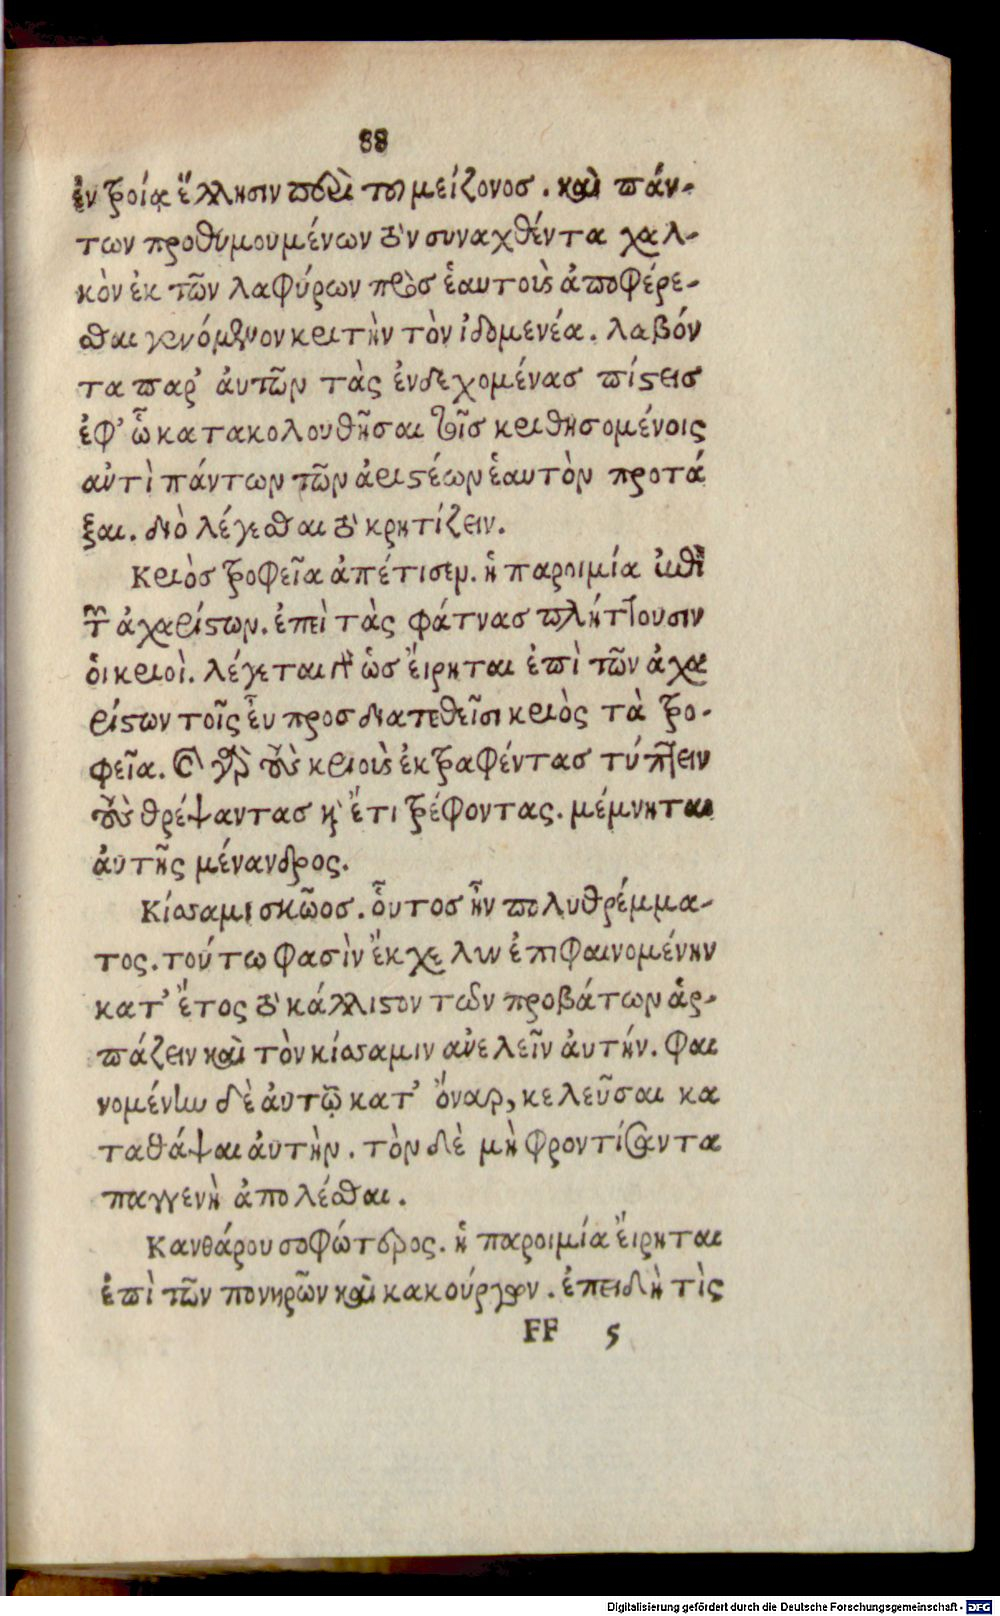 88
ἐν τροίᾳ ἕλλησιν περὶ του μείζονοσ . καὶ πάν-
των προθυμουμένων τὸν συναχθέντα χαλ-
κὸν ἐκ τῶν λαφύρων πρὸσ ἑαυτοὺς ἀποφέρε-
σθαι γενόμενον κριτὴν τὸν ἰδομενέα . λαβόν
τα παρ' ἀυτῶν τὰς ἐνδεχομένασ πίστεισ
ἐφ' ᾧ κατακολουθῆσαι τοῖσ κριθησομένοις
αὐτὶ πάντων τῶν ἀριστέων ἑαυτὸν προτά
ξαι . διὸ λέγεσθαι τὸ κρητίζειν.
Κριὸσ τροφεῖα ἀπέτισεν. ἡ παροιμία ἐπὶ
τῶν ἀχαρίστων. ἐπεὶ τὰς φάτνασ πλήττουσιν
ὁι κριοὶ. λέγεται δὲ ὡσ ἔιρηται ἐπὶ τῶν ἀχα
ρίστων τοῖς ἐυ προσ διατεθεῖσι κριὸς τὰ τρο-
φεῖα. καὶ γὰρ τοὺς κριοὺς ἐκτραφέντασ τύπτειν
τοὺς θρέψαντασ ἢ ἔτι τρέφοντας. μέμνηται
ἀυτῆς μένανδρος.
Κίσσαμισ κῶοσ. ὗτοσ ἦν πολυθρέμμα-
τος. τούτω φασὶν ἔκχελιν ἐπιφαινομένην
κατ' ἔτος τὸ κάλλιστον των προβάτων ἁρ-
πάζειν καὶ τὸν κίσσαμιν ανελεῖν ἀυτήν. φαι
νομένην δὲ ἀυτῷ κατ' ὄναρ, κελεῦσαι κα
ταθάψαι ἀυτὴν . τὸν δὲ μὴ φροντίσαντα
παγγενὴ ἀπολέσθαι .
Κανθάρου σοφώτερος. ἡ παροιμία ἔιρηται
ἐπὶ τῶν πονηρῶν καὶ κακούργων . ἐπειδή τὶς
FF 5
Digitalisierung gefördert durch die Deutsche Forschungsgemeinschaft - DFG